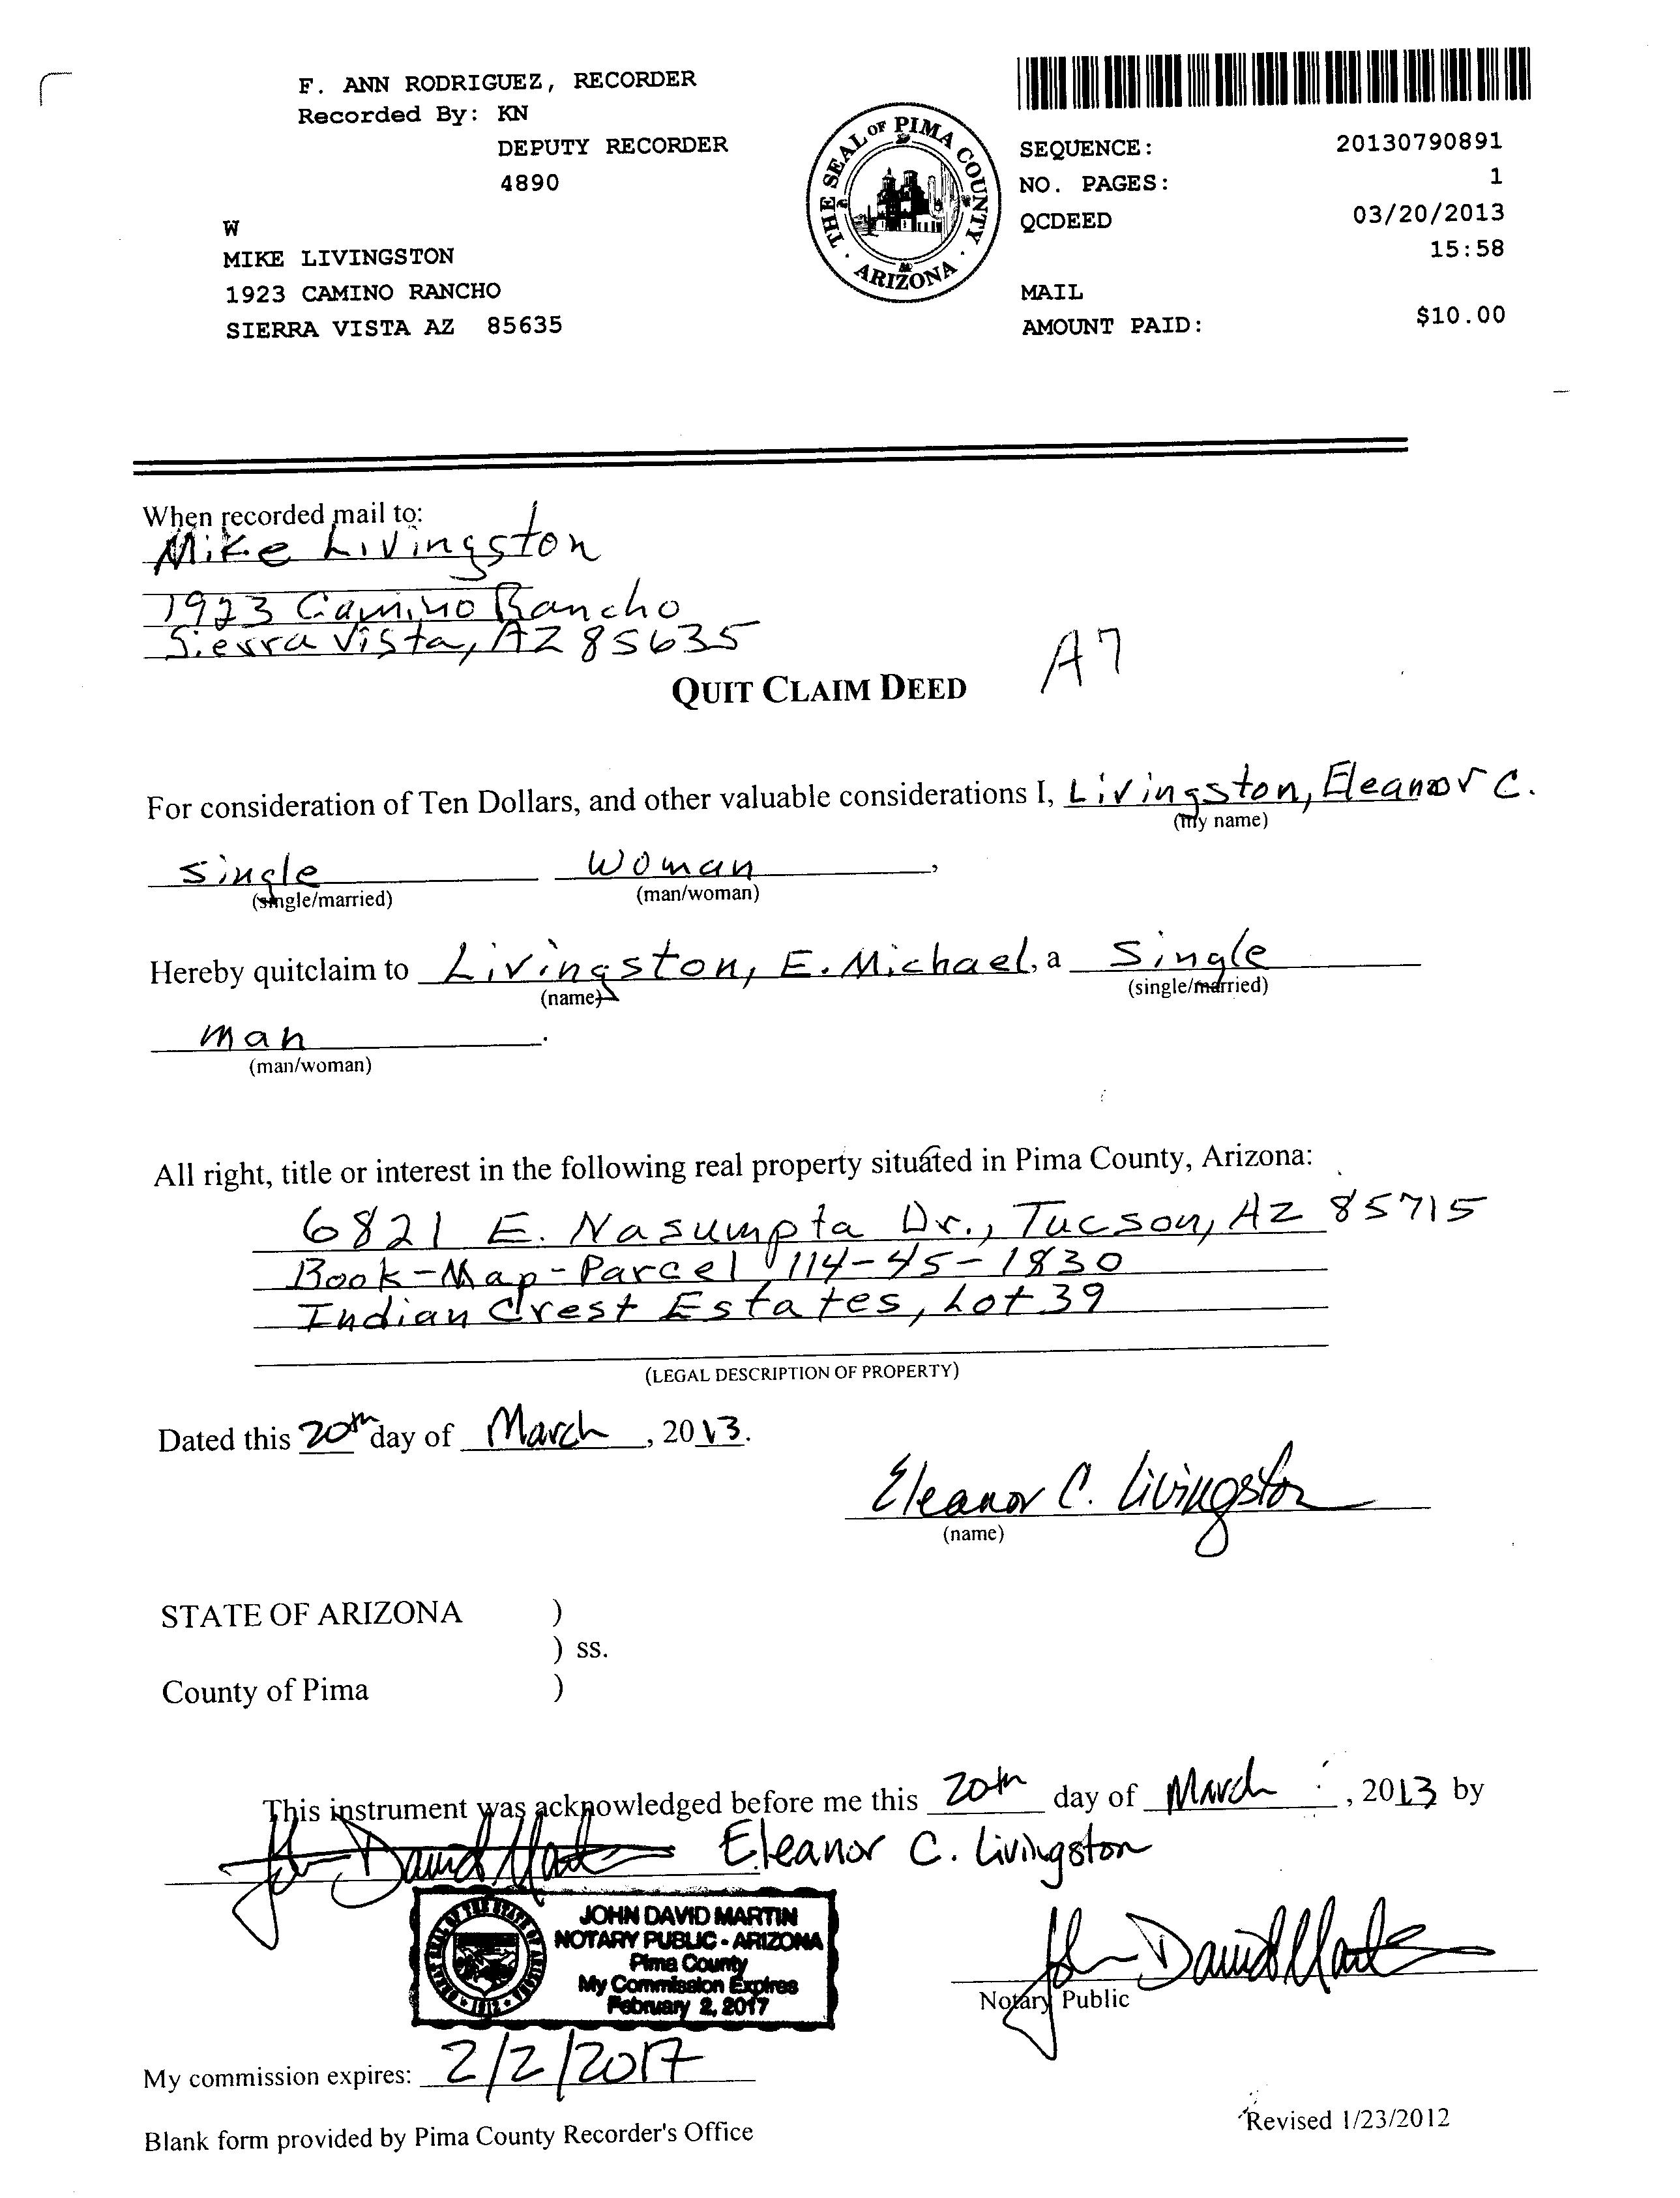 F. ANN RODRIGUEZ, RECORDER
Recorded By: KN
DEPUTY RECORDER
4890
W
MIKE LIVINGSTON
1923 CAMINO RANCHO
SIERRA VISTA AZ 85635
THE SEAL OF PIMA COUNTY
ARIZONA
SEQUENCE: 20130790891
NO. PAGES: 1
QCDEED 03/20/2013
15:58
MAIL
AMOUNT PAID: $10.00
When recorded mail to:
Mike Livingston
1923 Camino Rancho
Sierra Vista, AZ 85635
A7
QUIT CLAIM DEED
For consideration of Ten Dollars, and other valuable considerations I, Livingston, Eleanor C.
(my name)
single woman,
(single/married) (man/woman)
Hereby quitclaim to Livingston, E. Michael, a single
(name) (single/married)
man.
(man/woman)
All right, title or interest in the following real property situated in Pima County, Arizona:
6821 E. Nasumpta Dr., Tucson, AZ 85715
Book-Map-Parcel 114-45-1830
Indian Crest Estates, Lot 39
(LEGAL DESCRIPTION OF PROPERTY)
Dated this 20th day of March, 2013.
Eleanor C. Livingston
(name)
STATE OF ARIZONA )
) ss.
County of Pima )
This instrument was acknowledged before me this 20th day of March, 2013 by
John David Martin Eleanor C. Livingston
GREAT SEAL OF THE STATE OF ARIZONA
1912
JOHN DAVID MARTIN
NOTARY PUBLIC - ARIZONA
Pima County
My Commission Expires
February 2, 2017
John David Martin
Notary Public
My commission expires: 2/2/2017
Blank form provided by Pima County Recorder's Office
Revised 1/23/2012